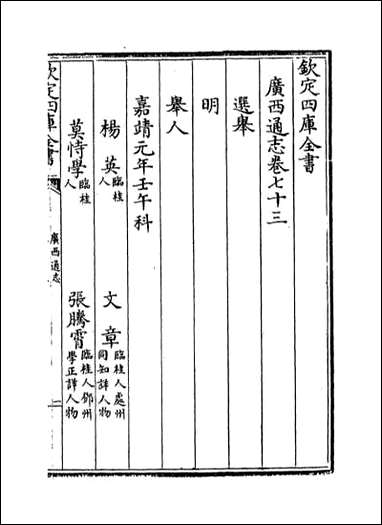 欽定四庫全書
廣西通志卷七十三
選舉
明
舉人
嘉靖元年壬午科
楊英 臨桂人
文章 臨桂人處州同知詳人物
莫恃學 臨桂人
張騰霄 臨桂人鄧州學正詳人物
欽定四庫全書
廣西通志
一